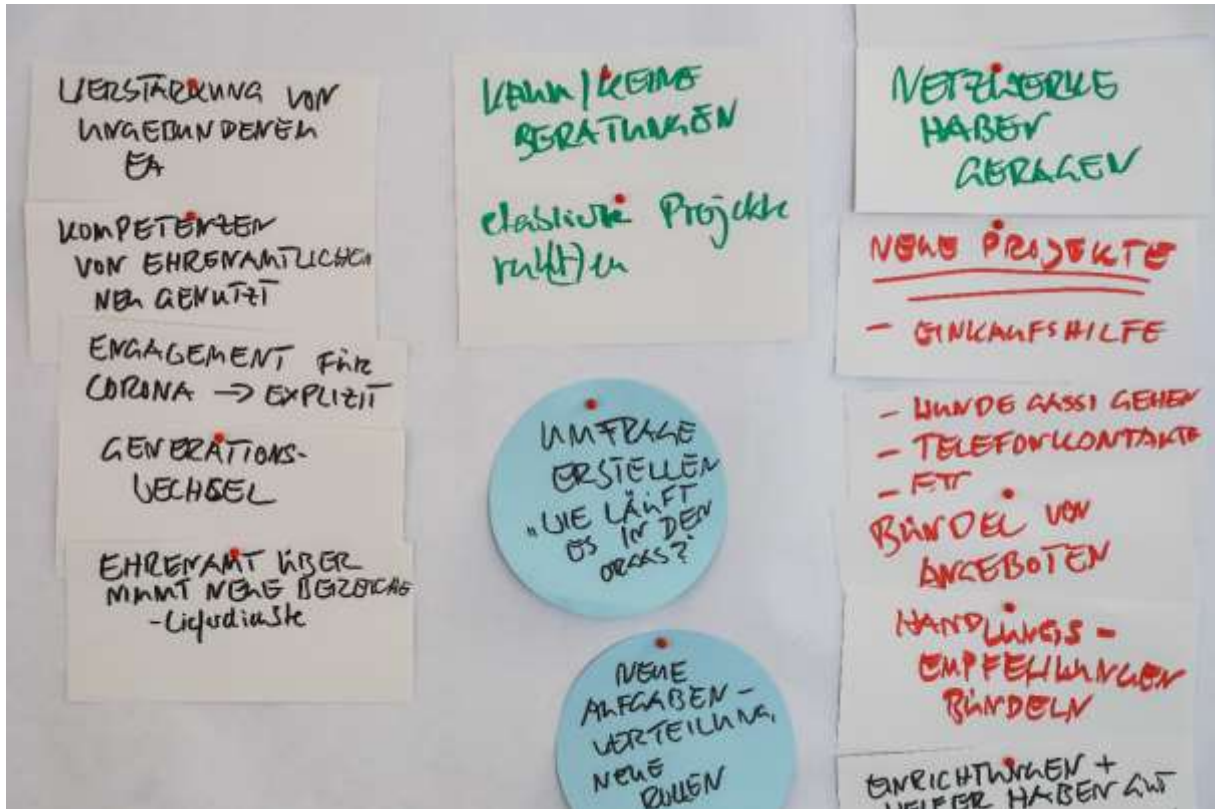 VERSTÄRKUNG VON
UNGEBUNDENEN
EA
KOMPETENZEN
VON EHRENAMTLICHEN
NEU GENUTZT
ENGAGEMENT FÜR
CORONA → EXPLIZIT
GENERATIONS-
WECHSEL
EHRENAMT ÜBER
NIMMT NEUE BEREICHE
- Lieferdienste
KAUM / KEINE
BERATUNGEN
etablierte Projekte
ruh(t)en
UMFRAGE
ERSTELLEN
„WIE LÄUFT
ES IN DEN
ORGAS?"
NEUE
AUFGABEN-
VERTEILUNG,
NEUE
ROLLEN
NETZWERKE
HABEN
GERAGEN
NEUE PROJEKTE
- EINKAUFSHILFE
- HUNDE GASSI GEHEN
- TELEFONKONTAKTE
BÜNDEL VON
ANGEBOTEN
HANDLUNGS-
EMPFEHLUNGEN
BÜNDELN
EINRICHTUNGEN +
HELFER HABEN GUT